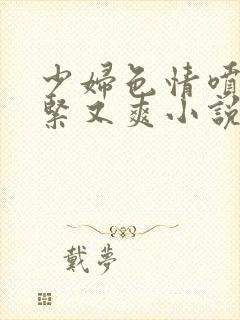 少婦色情噴
緊又爽小説
戴夢